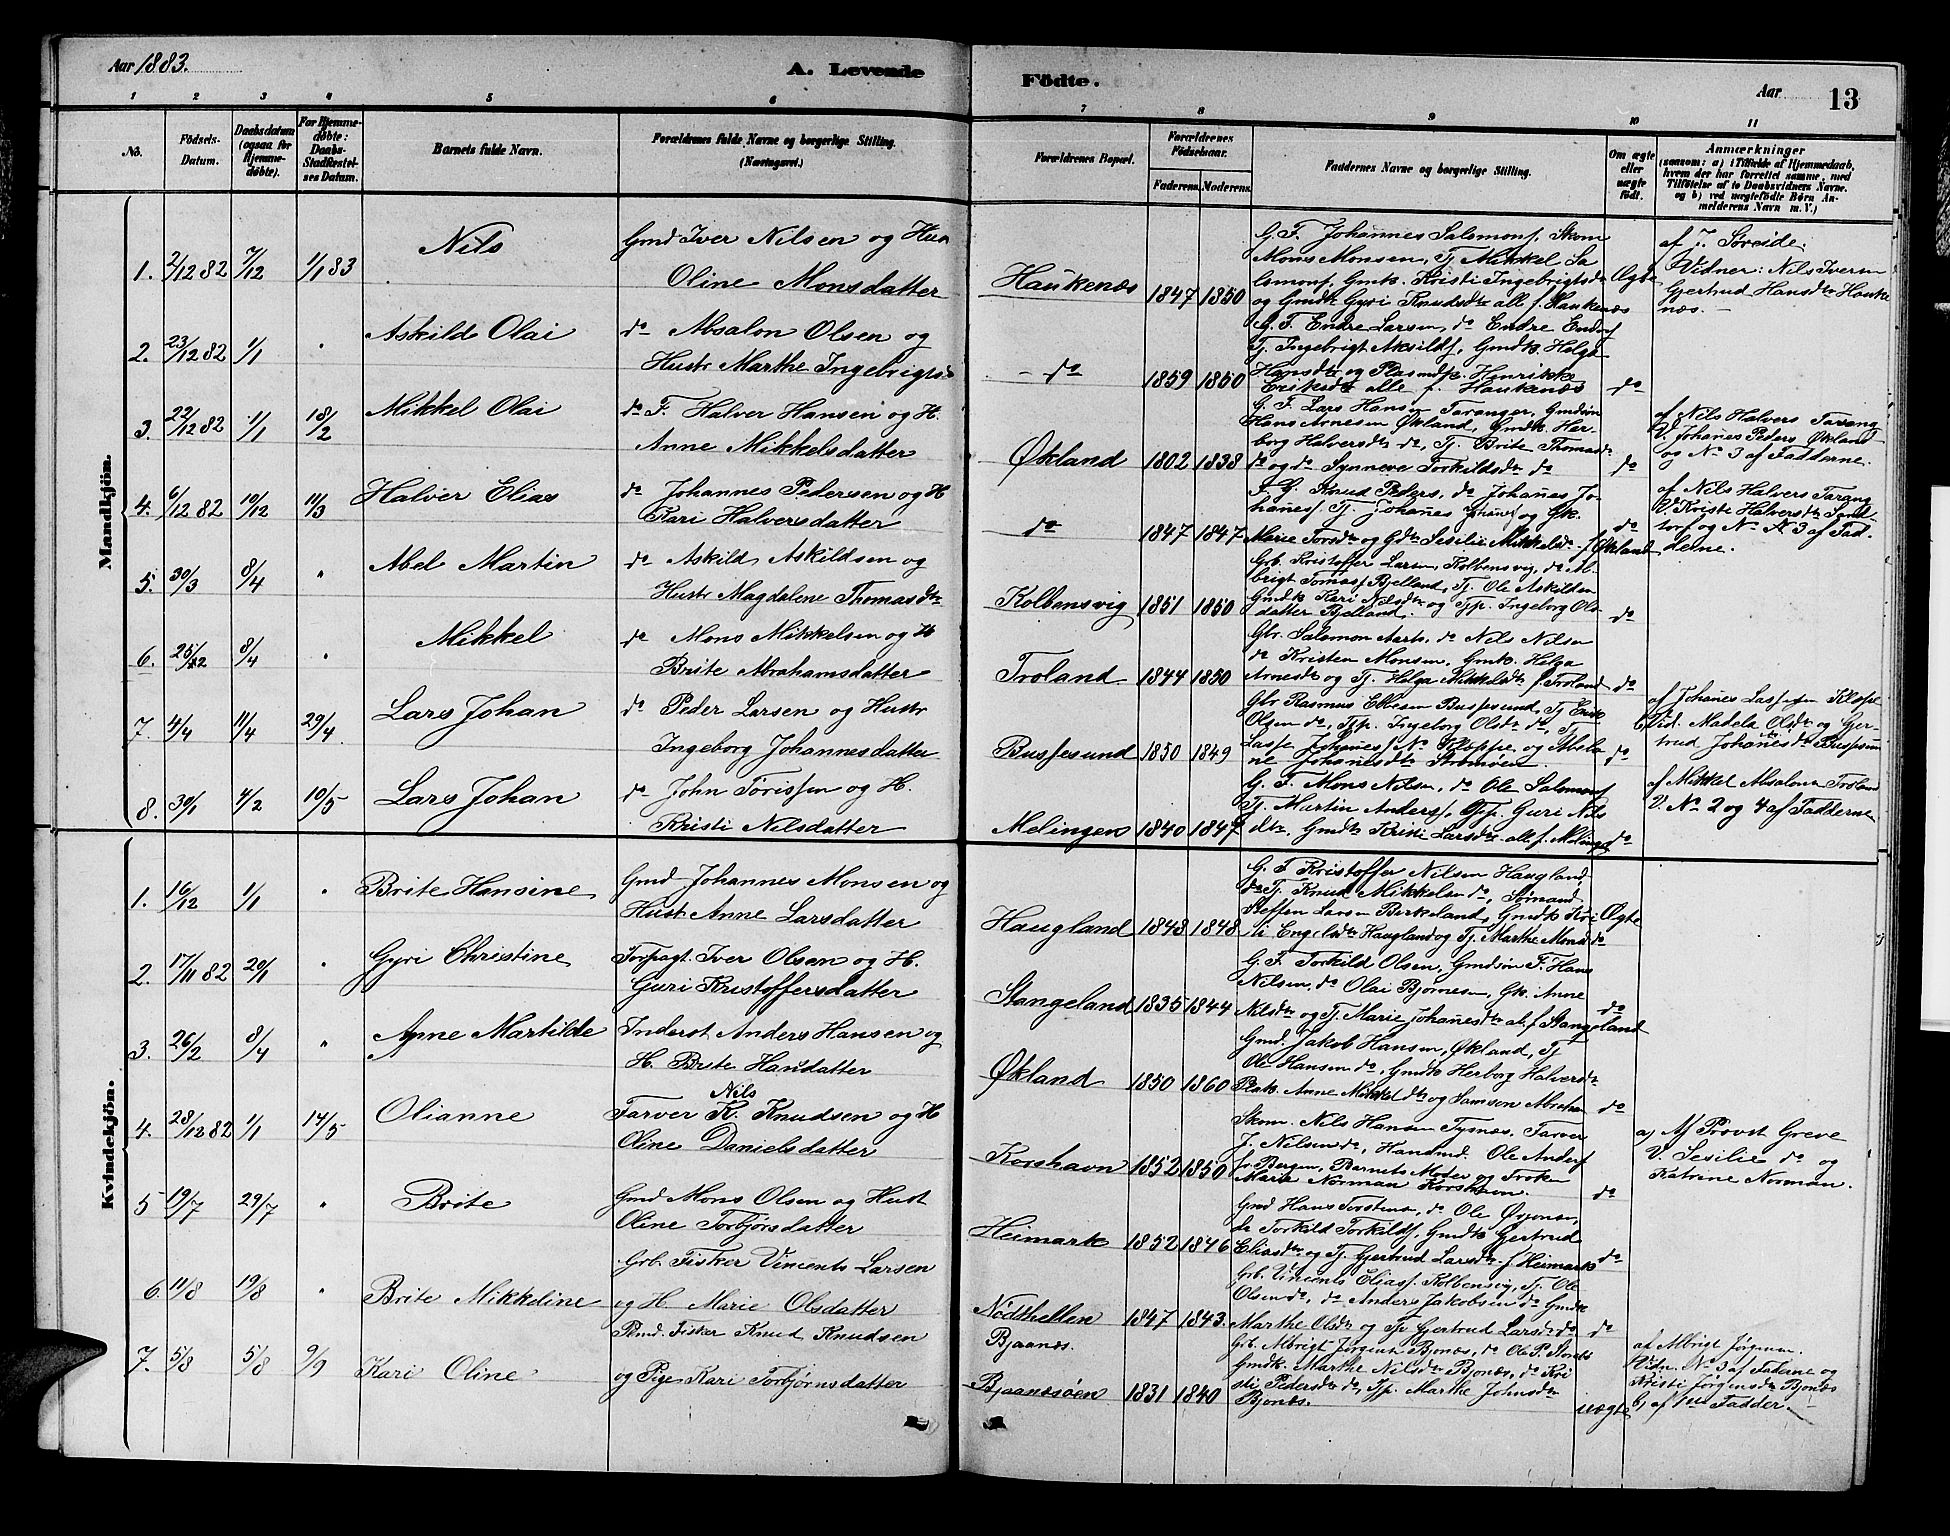 Aar 1883.
A. Levende Födte.
Aar
13
1 2 3 4 5 6 7 8 9 10 11
No.
Födsels-Datum.
Daabsdatum (ogsaa for Hjemme-døbte).
For Hjemme-døbte: Daabs-Stadfæstel-ses Datum.
Barnets fulde Navn.
Forældrenes fulde Navne og borgerlige Stilling.
(Næringsvei.)
Forældrenes Bopæl.
Forældrenes Födselsaar.
Faderens. Moderens.
Faddernes Navne og borgerlige Stilling.
Om ægte eller uægte født.
Anmærkninger
(saasom: a) i Tilfælde af Hjemmedaab,
hvem der har forrettet samme, med
Tilføielse af to Daabsvidners Navne.
og b) ved uægtefödte Børn An-
melderens Navn m. V.)
Mandkjön.
1. 2/12 82 7/12 1/1 83 Nils
Gmd Iver Nilsen og Hus
Oline Monsdatter
Haukenæs 1847 1850
G. F. Johannes Salomons. Skom
Mons Monsen, Tj Mikkel Sa
lomons. Gmk. Kristi Ingebrigtsdr
og Gmdk Gyri Knudsdr alle f. Haukenæs
Ægte
af J. Søreide.
Vidner: Nils Iversen
Gjertrud Hansdtr Hauke
næs. —
2. 23/12 82 1/1 " Askilde Olai
do Absalon Olsen og
Hustr Marthe Ingebrigts
— do 1859 1850
G. F. Endre Larsen, do Endre Ends
Tj. Ingebrigt Aksilds, Gmdk. Helga
Hansdtr og Plasmdk. Henrikke
Eriksdtr alle f. Haukenæs
do
3. 22/12 82 1/1 18/2 Mikkel Olai
do F. Halver Hansen og H.
Anne Mikkelsdatter
Økland 1802 1838
G. F. Lars Hansen Taranger, Gmdsøn
Hans Arnesen Økland, Gmdk Her-
borg Halversdtr do, Tj. Brite Thomasdtr
do og do Synneve Torkildsdtr do
do
af Nils Halvers Tarang
V. Johanes Peders Økland
og No 3 af Fadderne.
4. 6/12 82 10/12 11/3 Halver Elias
do Johannes Pedersen og H
Kari Halversdatter
do 1847 1847
F. G. Knud Peders, do Johanes Jo-
hanes Tj. Johanes Johanes og Gk.
Marie Torsdtr og Gdtr Sesilie Mikkelsdr. f. Økland
do
af Nils Halvers Tarang
V. Kriste Halversdtr Sand
torf og No 3 af Fad-
derne.
5. 30/3 8/4 " Abel Martin
do Askild Askildsen og
Hustr Magdalene Thomasdtr
Kolbensvig 1851 1850
Grb. Kristoffer Larsen, Kolbensvig, do Al-
brigt Tomas Bjelland, Tj. Ole Askildsen
Gmdk Kari Nilsdtr og Tjp. Ingeborg Ols-
datter Bjelland.
do
6. 25/12 8/4 " Mikkel
do Mons Mikkelsen og H
Brite Abrahamsdatter
Troland 1844 1850
Gbr. Salomon Aarts. do Nils Nilsen
do Kristen Monsen, Gmk. Helga
Arnesdtr og Tj. Helga Mikkelsdtr f. Troland
do
7. 4/4 11/4 29/4 Lars Johan
do Peder Larsen og Hustr
Ingeborg Johannesdatter
Bussesund 1850 1849
Gbr Rasmus Ellesen Bussesund, Tj Erik
Olsen do, Tjp. Ingeborg Olsdtr do, Tj
Lasse Johanes No Kloppe, og Absla-
ne Johanesdtr Strømøen.
do
af Johanes Lassesen Kloppe
Vid. Madela Olsdtr og Gjer-
trud Johanesdtr Bussesun
8. 30/1 4/2 10/5 Lars Johan
do John Tørissen og H.
Kristi Nilsdatter
Melingen 1840 1847
G. F. Mons Nilsen, do Ole Salomons
Tj. Martin Anders, Tjp. Guri Nils
dtr, Gmdk Kristi Larsdtr alle f. Melingen
do
af Mikkel Absalonsen Troland
V. No 2 og 4 af Fadderne
Kvindekjön.
1. 16/12 1/1 " Brite Hansine
Gmd Johannes Monsen og
Hust Anne Larsdatter
Haugland 1843 1848
G. F Kristoffer Nilsen Haugland,
do Tj. Knud Mikkelsen do, Sømand
Steffen Larsen Birkeland, Gmdk Kri-
sti Engelsdtr Haugland og Tj. Marthe Monsd do
Ægte
2. 17/11 82 20/1 " Gyri Christine
Forpagt. Iver Olsen og H.
Guri Kristoffersdatter
Stangeland 1835 1844
G. F. Torkild Olsen, Gmdsøn F. Hans
Nilsen, do Olai Bjørnesen, Gk. Anne
Nilsdtr og Tj. Marie Johanesdtr al. f. Stangeland
do
3. 26/2 8/4 " Anne Martilde
Inderst Anders Hansen og
H. Brite Hansdatter
Økland 1850 1860
Gmd. Jakob Hansen, Økland, Tj
Ole Hansen do, Gmdk Herborg Halversdtr
Plak. Anne Mikkelsdtr og Samson Abraham
do
4. 28/12 82 1/1 14/5 Olianne
Nils
Farver K. Knudsen og H
Oline Danielsdatter
Korshavn 1852 1850
Skom. Nils Hansen Tysnæs, Farver
J. Nilsen do, Handmd. Ole Anders
fr Bergen, Barnets Moder og Frøken
Marie Norman Korshavn.
do
a) Af Provst Greve
V. Sesilie do og
Katrine Norman.
5 19/7 29/7 " Brite
Gmd Mons Olsen og Hust
Oline Torbjørsdatter
Heimark 1852 1846
Gmd Hans Torstens, do Ole Ørjansen,
do Torkild Torkilds, Gmdk Gjertrud
Eliasdtr og Tj. Gjertrud Larsdtr f. Heimark
do
6. 11/8 19/8 " Brite Mikkeline
Grb. Fisker Vincents Larsen
og H. Marie Olsdatter
Nödthellen 1847 1843.
Grb. Vincents Elias. Kolbensvig, Tj. Ole
Olsen do, do Anders Jakobsen do Gmdk
Marthe Olsdtr og Tjp Gjertrud Larsdtr do
do
7. 5/8 5/8 9/9 Kari Oline
Plmd. Fisker Knud Knudsen
og Pige Kari Torbjørnsdatter
Bjaanæs.
Bjaanæsøen 1831 1840
Grb. Albrigt Jørgensen Bjonæs, do Ole P. Stonæs
Gmdk. Marthe Nilsdtr Bjonæs, do Kri
sti Pedersdtr do, Tjp. Marthe Johnsdtr
Bjonæs.
uægte
af Albrigt Jørgensen.
Vidn. No 3 af Fadderne og
Kristi Jørgensdtr Bjonæs
b) af 1ste Fadder.